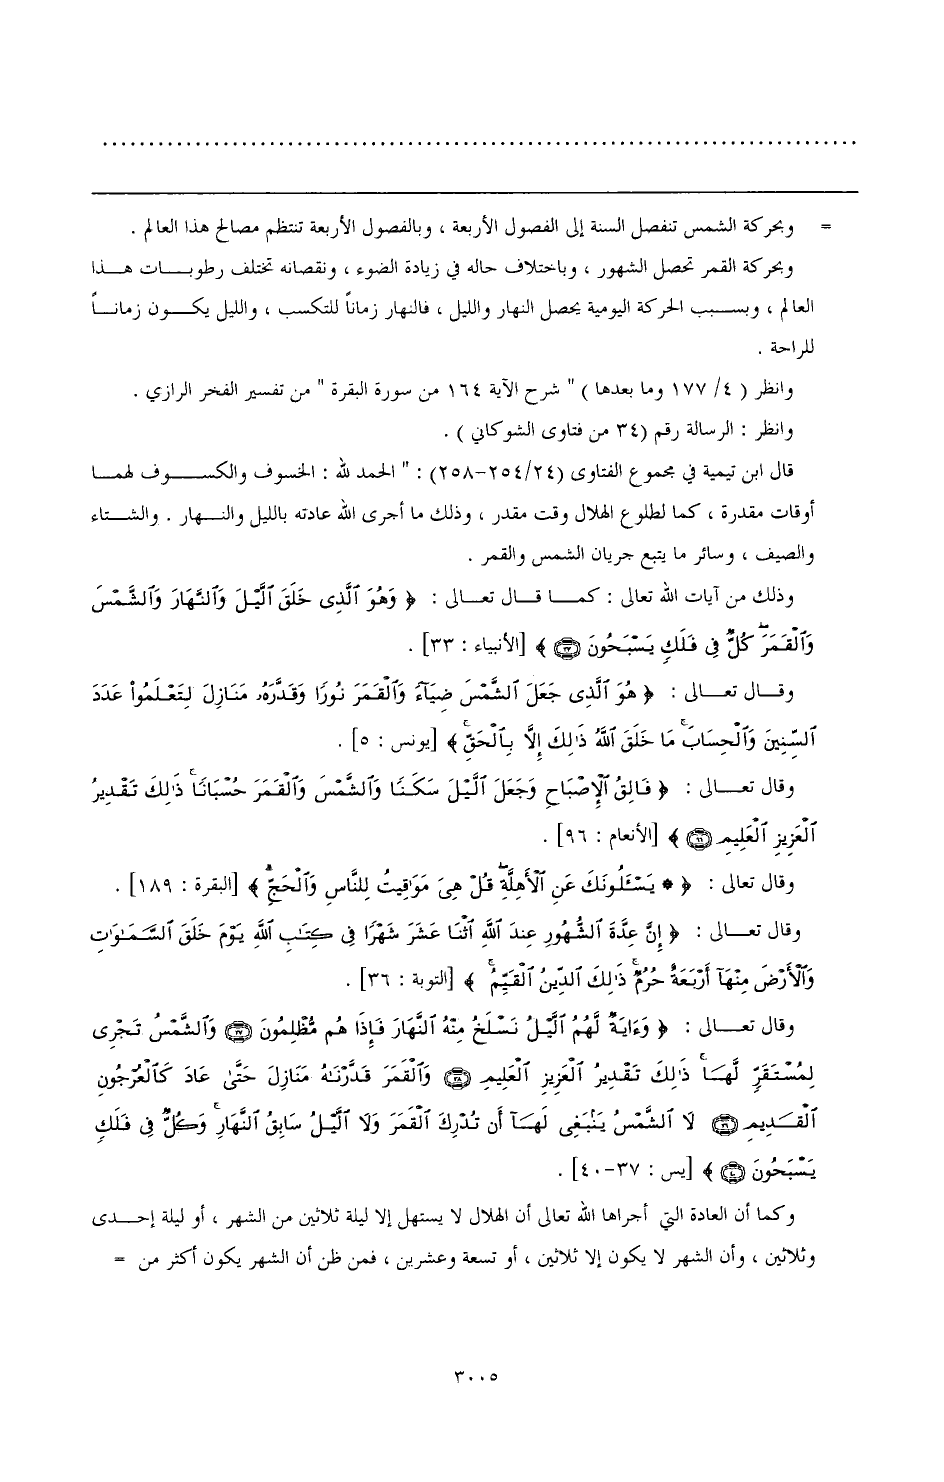 = وبحركة الشمس تنفصل السنة إلى الفصول الأربعة ، وبالفصول الأربعة تنتظم مصالح هذا العالم .
وبحركة القمر تحصل الشهور ، وباختلاف حاله في زيادة الضوء ، ونقصانه تختلف رطوبـــات هـــذا
العالم ، وبســـبب الحركة اليومية يحصل النهار والليل ، فالنهار زماناً للتكسب ، والليل يكـــون زمانـــاً
للراحة .
وانظر ( ٤/ ١٧٧ وما بعدها ) " شرح الآية ١٦٤ من سورة البقرة " من تفسير الفخر الرازي .
وانظر : الرسالة رقم (٣٤ من فتاوى الشوكاني ) .
قال ابن تيمية في مجموع الفتاوى (٢٥٤/٢٤–٢٥٨) : " الحمد لله : الخسوف والكســـوف لهمـــا
أوقات مقدرة ، كما لطلوع الهلال وقت مقدر ، وذلك ما أجرى الله عادته بالليل والنـــهار . والشـــتاء
والصيف ، وسائر ما يتبع جريان الشمس والقمر .
وذلك من آيات الله تعالى : كمـــا قـــال تعـــالى : ﴿ وَهُوَ ٱلَّذِى خَلَقَ ٱلَّيْلَ وَٱلنَّهَارَ وَٱلشَّمْسَ
وَٱلْقَمَرَ ۖ كُلٌّ فِى فَلَكٍ يَسْبَحُونَ ۝٣٣ ﴾ [الأنبياء : ٣٣] .
وقـــال تعـــالى : ﴿ هُوَ ٱلَّذِى جَعَلَ ٱلشَّمْسَ ضِيَآءً وَٱلْقَمَرَ نُورًا وَقَدَّرَهُۥ مَنَازِلَ لِتَعْلَمُوا۟ عَدَدَ
ٱلسِّنِينَ وَٱلْحِسَابَ ۚ مَا خَلَقَ ٱللَّهُ ذَٰلِكَ إِلَّا بِٱلْحَقِّ ۚ ﴾ [يونس : ٥] .
وقال تعـــالى : ﴿ فَالِقُ ٱلْإِصْبَاحِ وَجَعَلَ ٱلَّيْلَ سَكَنًا وَٱلشَّمْسَ وَٱلْقَمَرَ حُسْبَانًا ۚ ذَٰلِكَ تَقْدِيرُ
ٱلْعَزِيزِ ٱلْعَلِيمِ ۝٩٦ ﴾ [الأنعام : ٩٦] .
وقال تعالى : ﴿ * يَسْـَٔلُونَكَ عَنِ ٱلْأَهِلَّةِ ۖ قُلْ هِىَ مَوَٰقِيتُ لِلنَّاسِ وَٱلْحَجِّ ۗ ﴾ [البقرة : ١٨٩] .
وقال تعـــالى : ﴿ إِنَّ عِدَّةَ ٱلشُّهُورِ عِندَ ٱللَّهِ ٱثْنَا عَشَرَ شَهْرًا فِى كِتَٰبِ ٱللَّهِ يَوْمَ خَلَقَ ٱلسَّمَٰوَٰتِ
وَٱلْأَرْضَ مِنْهَآ أَرْبَعَةٌ حُرُمٌ ۚ ذَٰلِكَ ٱلدِّينُ ٱلْقَيِّمُ ۚ ﴾ [التوبة : ٣٦] .
وقال تعـــالى : ﴿ وَءَايَةٌ لَّهُمُ ٱلَّيْلُ نَسْلَخُ مِنْهُ ٱلنَّهَارَ فَإِذَا هُم مُّظْلِمُونَ ۝٣٧ وَٱلشَّمْسُ تَجْرِى
لِمُسْتَقَرٍّ لَّهَا ۚ ذَٰلِكَ تَقْدِيرُ ٱلْعَزِيزِ ٱلْعَلِيمِ ۝٣٨ وَٱلْقَمَرَ قَدَّرْنَٰهُ مَنَازِلَ حَتَّىٰ عَادَ كَٱلْعُرْجُونِ
ٱلْقَدِيمِ ۝٣٩ لَا ٱلشَّمْسُ يَنۢبَغِى لَهَآ أَن تُدْرِكَ ٱلْقَمَرَ وَلَا ٱلَّيْلُ سَابِقُ ٱلنَّهَارِ ۚ وَكُلٌّ فِى فَلَكٍ
يَسْبَحُونَ ۝٤٠ ﴾ [يس : ٣٧–٤٠] .
وكما أن العادة التي أجراها الله تعالى أن الهلال لا يستهل إلا ليلة ثلاثين من الشهر ، أو ليلة إحـــدى
وثلاثين ، وأن الشهر لا يكون إلا ثلاثين ، أو تسعة وعشرين ، فمن ظن أن الشهر يكون أكثر من =
٣٠٠٥